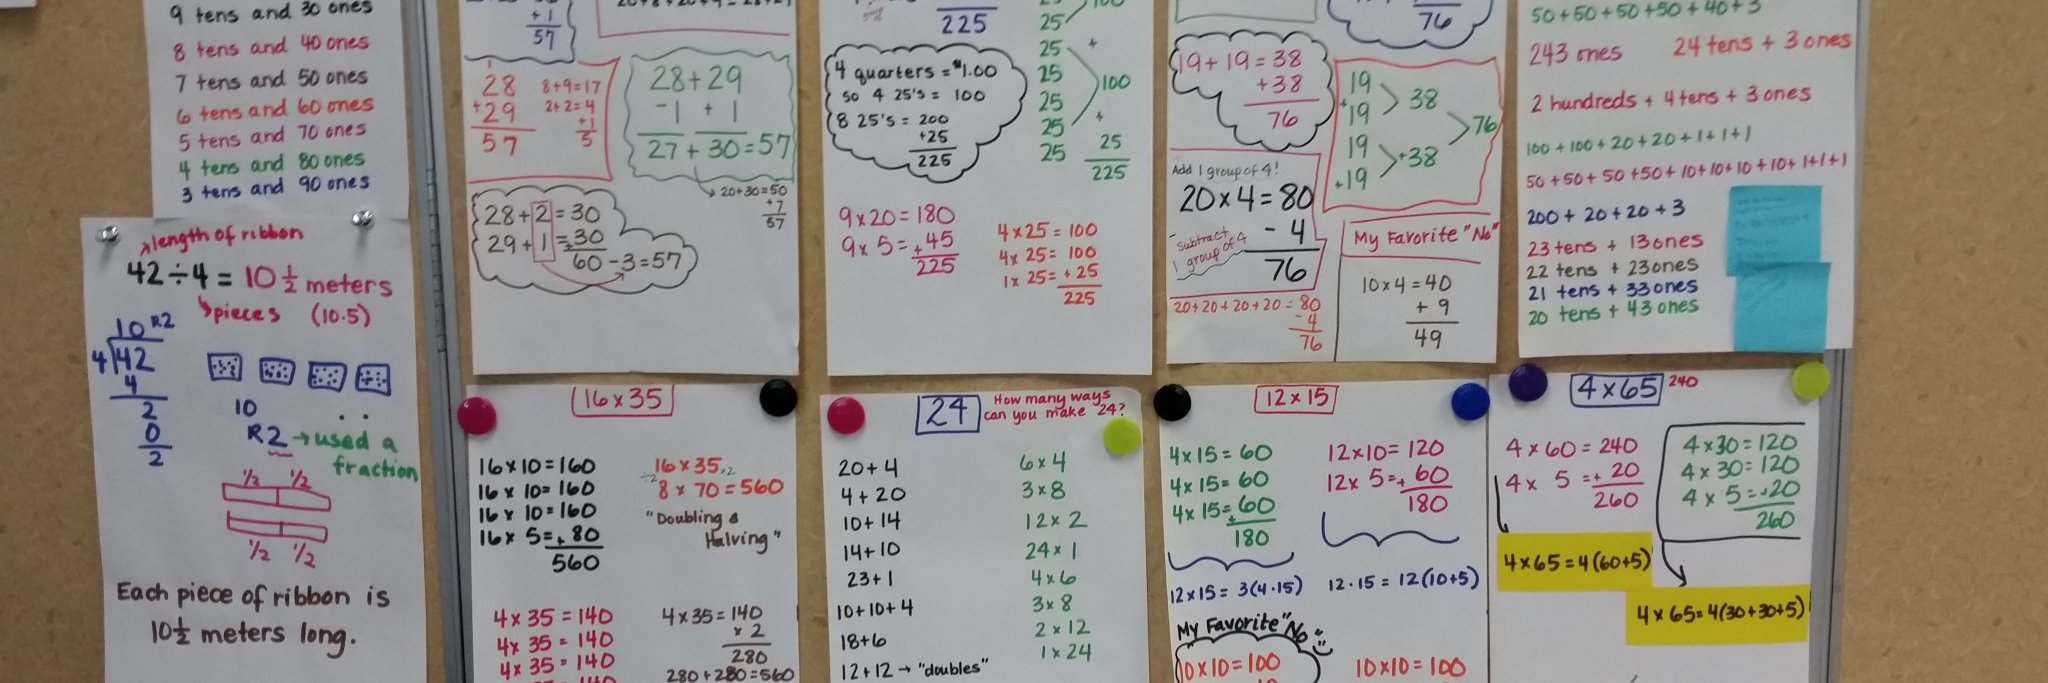 9 tens and 30 ones
8 tens and 40 ones
7 tens and 50 ones
6 tens and 60 ones
5 tens and 70 ones
4 tens and 80 ones
3 tens and 90 ones
length of ribbon
42 ÷ 4 = 10 ½ meters
pieces (10.5)
10 R2
4 42
4
2
0
2
10
R2 → used a
fraction
½ ½
½ ½
Each piece of ribbon is
10½ meters long.
+1
57
28
+29
57
8+9=17
2+2=4
+1
5
28+29
-1 +1
27 + 30 = 57
→ 20+30=50
+7
57
28+2=30
29+1=+30
60-3=57
225
4 quarters = $1.00
so 4 25's = 100
8 25's = 200
+25
225
25
25
25
25
25
25
25
100
+
100
+
25
225
9 x 20 = 180
9 x 5 = +45
225
4 x 25 = 100
4 x 25 = 100
1 x 25 = +25
225
76
19+19=38
+38
76
19
+19
19
+19
38
+38
76
Add 1 group of 4!
20 x 4 = 80
- 4
76
- subtract
1 group of 4
20+20+20+20=80
-4
76
My Favorite "No"
10 x 4 = 40
+ 9
49
50+50+50+50+40+3
243 ones 24 tens + 3 ones
2 hundreds + 4 tens + 3 ones
100 + 100 + 20 + 20 + 1 + 1 + 1
50 + 50 + 50 + 50 + 10 + 10 + 10 + 10 + 1 + 1 + 1
200 + 20 + 20 + 3
23 tens + 13 ones
22 tens + 23 ones
21 tens + 33 ones
20 tens + 43 ones
16 x 35
16 x 10 = 160
16 x 10 = 160
16 x 10 = 160
16 x 5 = +80
560
16 x 35 x2
÷2 8 x 70 = 560
"Doubling &
Halving"
4 x 35 = 140
4 x 35 = 140
4 x 35 = 140
4 x 35 = 140
x 2
280
280 + 280 = 560
24
How many ways
can you make 24?
20 + 4
4 + 20
10 + 14
14 + 10
23 + 1
10 + 10 + 4
18 + 6
12 + 12 → "doubles"
6 x 4
3 x 8
12 x 2
24 x 1
4 x 6
3 x 8
2 x 12
1 x 24
12 x 15
4 x 15 = 60
4 x 15 = 60
4 x 15 = +60
180
12 x 15 = 3(4·15)
12 x 10 = 120
12 x 5 = +60
180
12·15 = 12(10+5)
My Favorite "No"
10 x 10 = 100
10 x 10 = 100
4 x 65 240
4 x 60 = 240
4 x 5 = +20
260
4 x 30 = 120
4 x 30 = 120
4 x 5 = +20
260
4 x 65 = 4(60+5)
4 x 65 = 4(30+30+5)